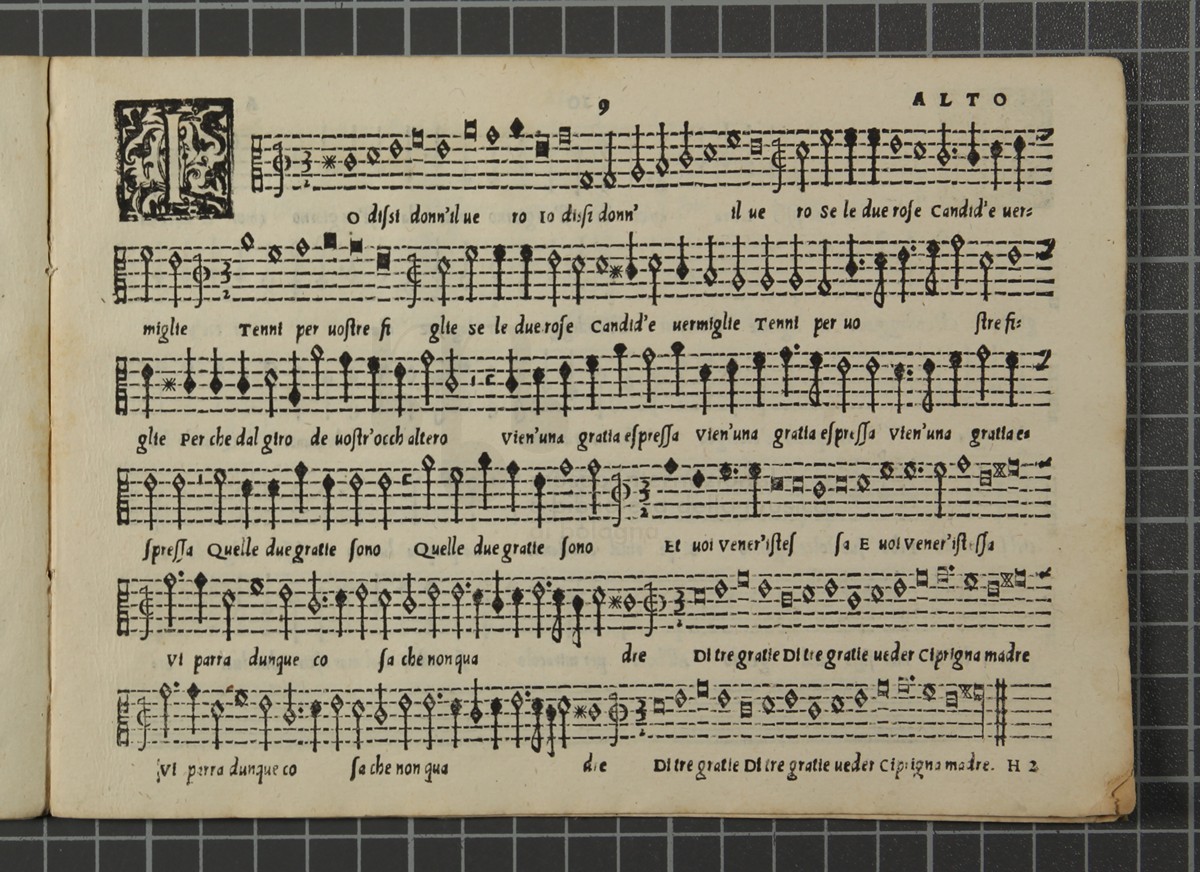 9 ALTO
IO dißi donn'il ue ro Io dißi donn' il ue ro Se le due rose Candid'e uer=
miglie Tenni per uoſtre fi glie se le due roſe Candid'e uermiglie Tenni per uo ſtre fi=
glie Per che dal giro de uoſtr'occh altero Vien'una gratia eſpreſſa Vien'una gratia eſpreſſa Vien'una gratia e=
ſpreſſa Quelle due gratie ſono Quelle due gratie ſono Et uoi Vener'iſteſ ſa E uoi Vener'iſteſſa
Vi parra dunque co ſa che non qua die Di tre gratie Di tre gratie ueder Ciprigna madre
Vi parra dunque co ſa che non qua die Di tre gratie Di tre gratie ueder Ciprigna madre. H 2